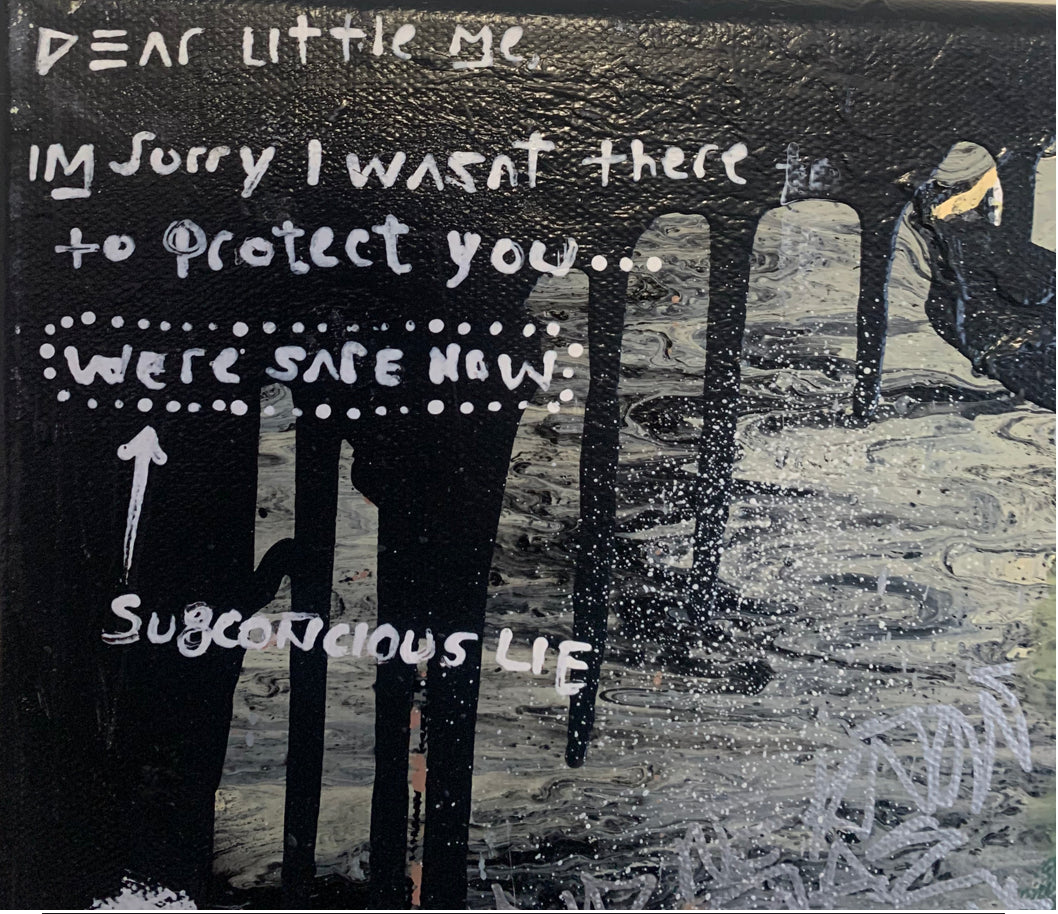 DEAr Little Me,
IM Sorry I wASnt there to
to Protect you...
were SAFE NOW
SUBCONCIOUS LIE